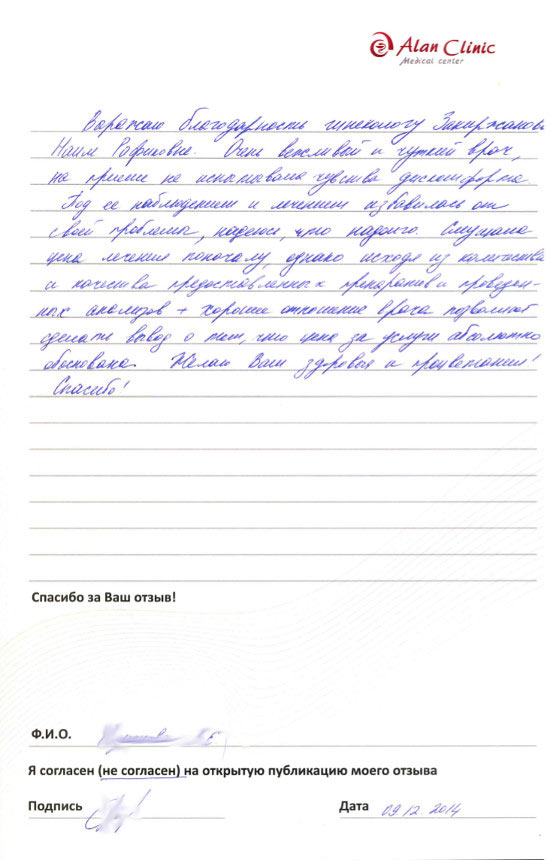 Alan Clinic
Medical center
Выражаю благодарность гинекологу Закиржанов
Наиле Рафиковне. Очень вежливый и чуткий врач,
на приеме не испытывала чувства дискомфорта.
Под ее наблюдением и лечением избавилась от
своей проблемы, надеюсь, что надолго. Смущала
цена лечения поначалу, однако исходя из количества
и качества предоставленных препаратов и проведен-
ных анализов + хорошее отношение врача позволяют
сделать вывод о том, что цена за услуги абсолютно
обоснована. Желаю Вам здоровья и процветания!
Спасибо!
Спасибо за Ваш отзыв!
Ф.И.О.
Я согласен (не согласен) на открытую публикацию моего отзыва
Подпись Дата 09.12.2014